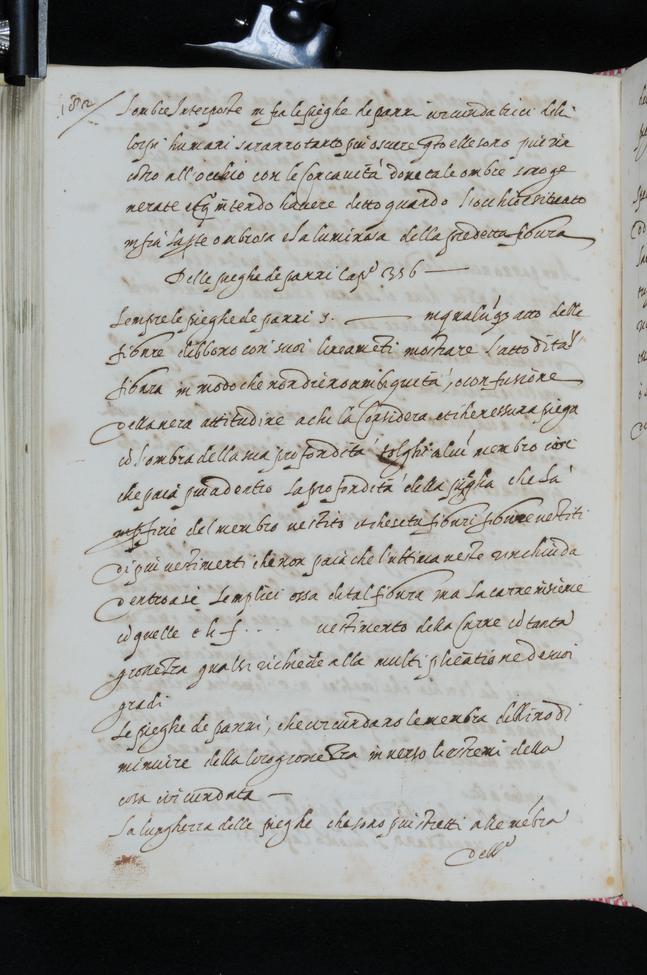 182
L'ombre Interposte in fra le pieghe de panni circundatrici delli
corpi humani saranno tanto piu oscure qto elle sono piu rin
contro all'occhio con le concavità dove tale ombre sono ge
nerate et qo intendo havere detto quando l'occhio è situato
in fra la pte ombrosa e la luminosa della predetta figura
Delle pieghe de panni Capo 356
Sempre le pieghe de panni s. in qualuqs atto delle
figure debbono con suoi lineamēti mostrare l'atto di tal
figura in modo che non dieno ambiguità, o confusione
della vera attitudine a chi la Considera et che nessuna piega
cō l'ombra della sua profondità tolghi alcū membro cioè
che paia piu a dentro la profondità della piegha che la
del membro vestito et che se tu figuri figure vestiti
di piu vestimenti che non paia che l'ultima veste rinchiuda
dentro a se semplici ossa di tal figura ma la carne insieme
cō quelle e li f... vestimento della Carne cō tanta
grossezza qual si richiede alla multiplicatione de suoi
gradi
Le pieghe de panni, che circundano le membra debbino di
minuire della loro grossezza inverso li stremi della
cosa circundata
La lunghezza delle pieghe che sono piu stretti alle mēbra
Dell'